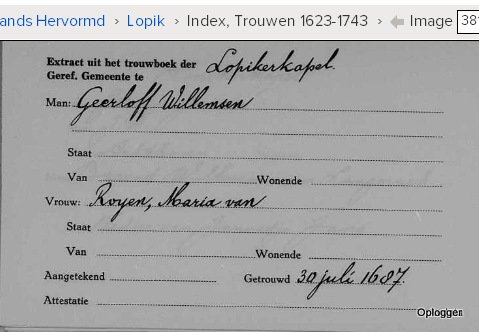 ands Hervormd › Lopik › Index, Trouwen 1623-1743 › Image 381
Extract uit het trouwboek der Lopikerkapel.
Geref. Gemeente te
Man: Geerloff Willemsen
Staat
Van Wonende
Vrouw: Royen, Maria van
Staat
Van Wonende
Aangetekend Getrouwd 30 juli 1687.
Attestatie
Oploggen